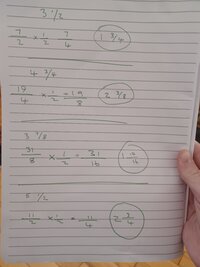 3 1/2
7/2 × 1/2 7/4 1 3/4
4 3/4
19/4 × 1/2 = 19/8 2 3/8
3 7/8
31/8 × 1/2 = 31/16 1 15/16
5 1/2
11/2 × 1/2 = 11/4 2 3/4